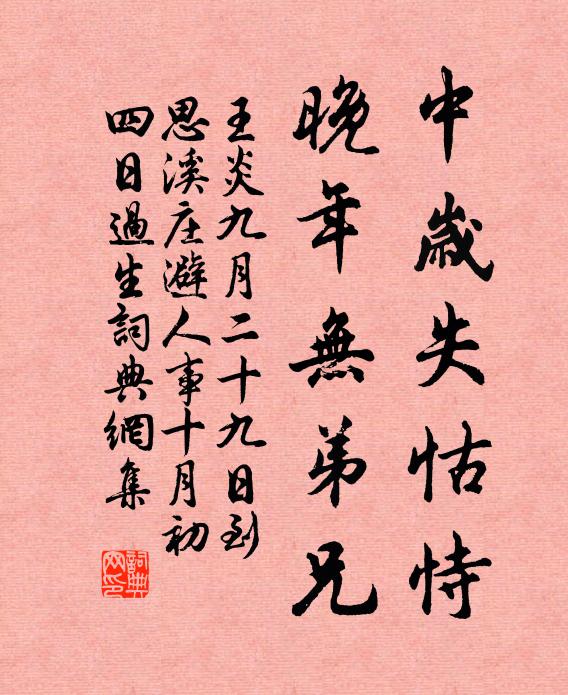 中歲失怙恃
晚年無弟兄
王炎九月二十九日到
思溪庄避人事十月初
四日過生詞典網集
詞典
网印